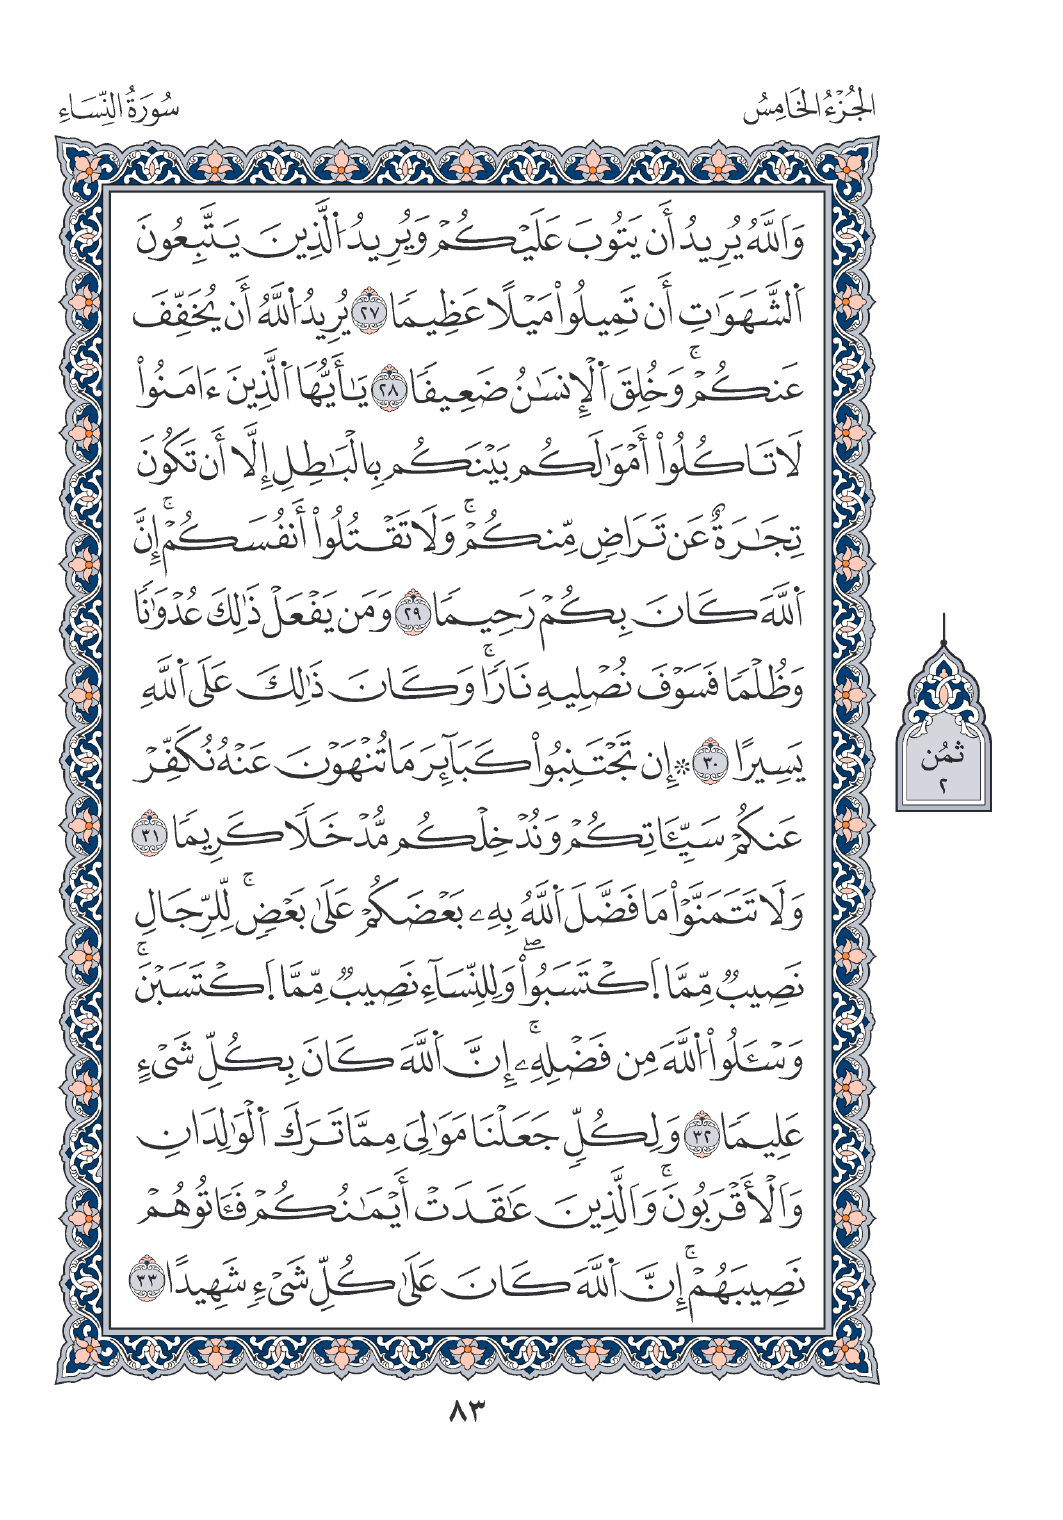 الجُزْءُ الخَامِسُ
سُورَةُ النِّسَاءِ
وَاَللَّهُ يُرِيدُ أَن يَتُوبَ عَلَيْكُمْ وَيُرِيدُ اُلَّذِينَ يَتَّبِعُونَ
اَلشَّهَوَٰتِ أَن تَمِيلُواْ مَيْلًا عَظِيمًا ٢٧ يُرِيدُ اُللَّهُ أَن يُخَفِّفَ
عَنكُمْۚ وَخُلِقَ اَلْإِنسَٰنُ ضَعِيفًا ٢٨ يَٰأَيُّهَا اَلَّذِينَ ءَامَنُواْ
لَا تَاكُلُواْ أَمْوَٰلَكُم بَيْنَكُم بِالْبَٰطِلِ إِلَّا أَن تَكُونَ
تِجَٰرَةٌ عَن تَرَاضٍ مِّنكُمْۚ وَلَا تَقْتُلُواْ أَنفُسَكُمْۚ إِنَّ
اَللَّهَ كَانَ بِكُمْ رَحِيمًا ٢٩ وَمَن يَفْعَلْ ذَٰلِكَ عُدْوَٰنًا
وَظُلْمًا فَسَوْفَ نُصْلِيهِ نَارًاۚ وَكَانَ ذَٰلِكَ عَلَى اَللَّهِ
يَسِيرًا ٣٠ ۞ إِن تَجْتَنِبُواْ كَبَآئِرَ مَا تُنْهَوْنَ عَنْهُ نُكَفِّرْ
عَنكُمْ سَيِّـَٔاتِكُمْ وَنُدْخِلْكُم مُّدْخَلًا كَرِيمًا ٣١
وَلَا تَتَمَنَّوْاْ مَا فَضَّلَ اَللَّهُ بِهِۦ بَعْضَكُمْ عَلَىٰ بَعْضٍۚ لِّلرِّجَالِ
نَصِيبٌ مِّمَّا اَكْتَسَبُواْۖ وَلِلنِّسَآءِ نَصِيبٌ مِّمَّا اَكْتَسَبْنَۚ
وَسْـَٔلُواْ اُللَّهَ مِن فَضْلِهِۦۚ إِنَّ اَللَّهَ كَانَ بِكُلِّ شَيْءٍ
عَلِيمًا ٣٢ وَلِكُلٍّ جَعَلْنَا مَوَٰلِيَ مِمَّا تَرَكَ اَلْوَٰلِدَانِ
وَاَلْأَقْرَبُونَۚ وَاَلَّذِينَ عَٰقَدَتْ أَيْمَٰنُكُمْ فَـَٔاتُوهُمْ
نَصِيبَهُمْۚ إِنَّ اَللَّهَ كَانَ عَلَىٰ كُلِّ شَيْءٍ شَهِيدًا ٣٣
ثُمُن
٢
٨٣